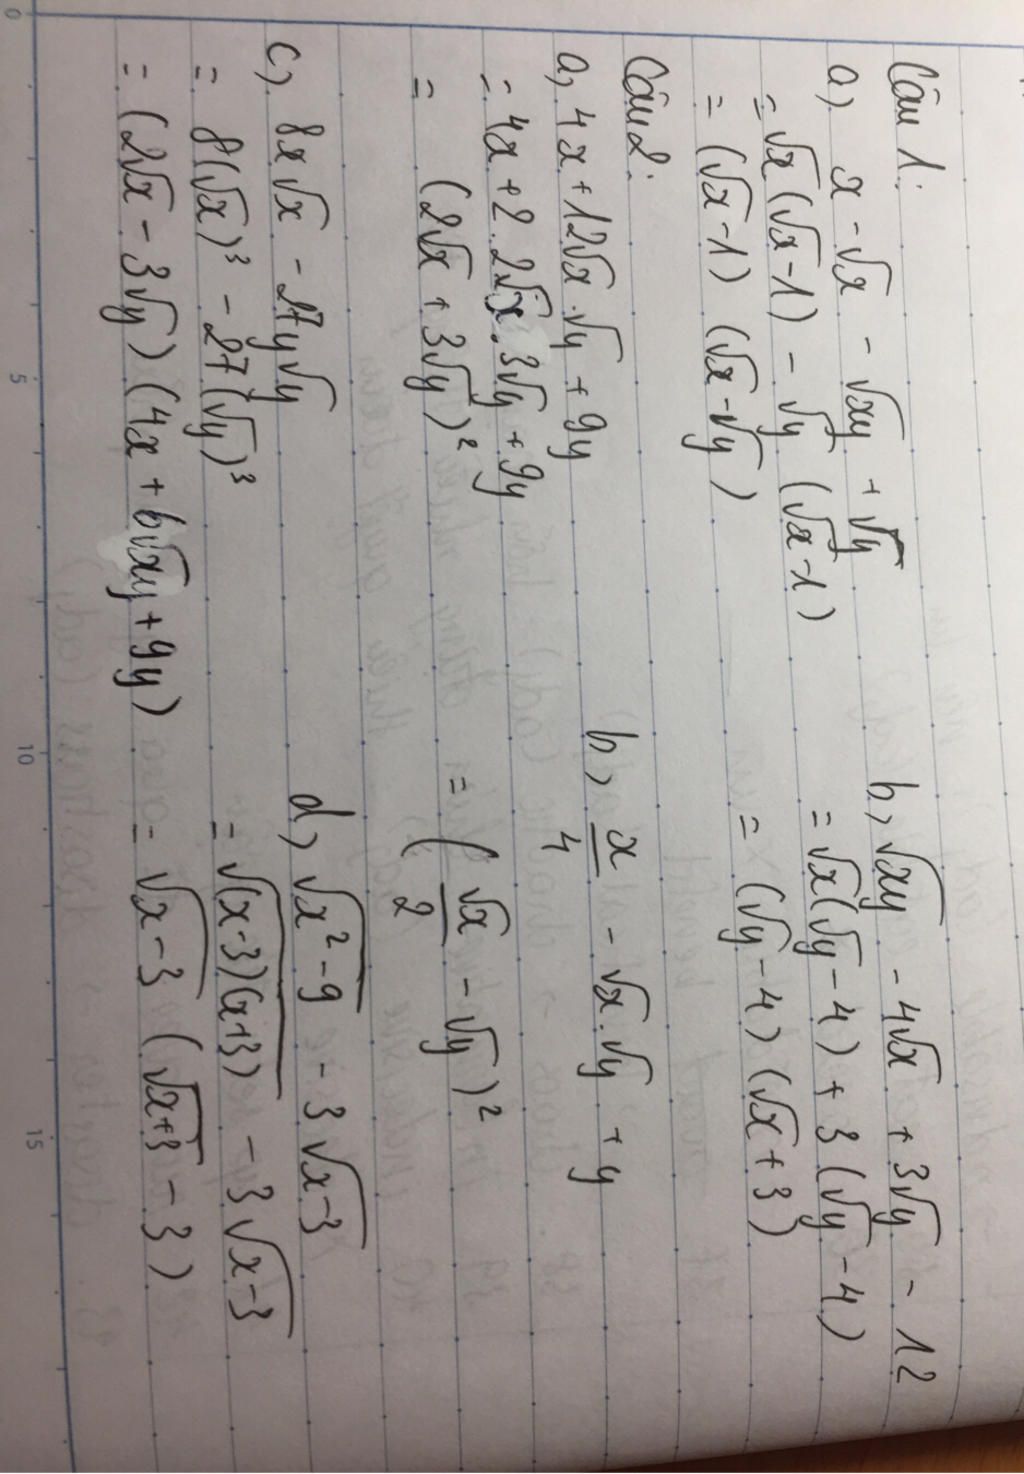 Câu 1:
a, x - √x - √xy + √y
= √x(√x-1) - √y (√x-1)
= (√x-1) (√x-√y)
b, √xy - 4√x + 3√y - 12
= √x(√y-4) + 3(√y-4)
= (√y-4) (√x+3)
Câu 2:
a, 4x + 12√x.√y + 9y
= 4x + 2.2√x.3√y + 9y
= (2√x + 3√y)²
b, x/4 - √x.√y + y
= (√x/2 - √y)²
c, 8x√x - 27y√y
= 8(√x)³ - 27(√y)³
= (2√x - 3√y) (4x + 6√xy + 9y)
d, √x²-9 - 3√x-3
= √(x-3)(x+3) - 3√x-3
= √x-3 (√x+3 - 3)
0
5
10
15